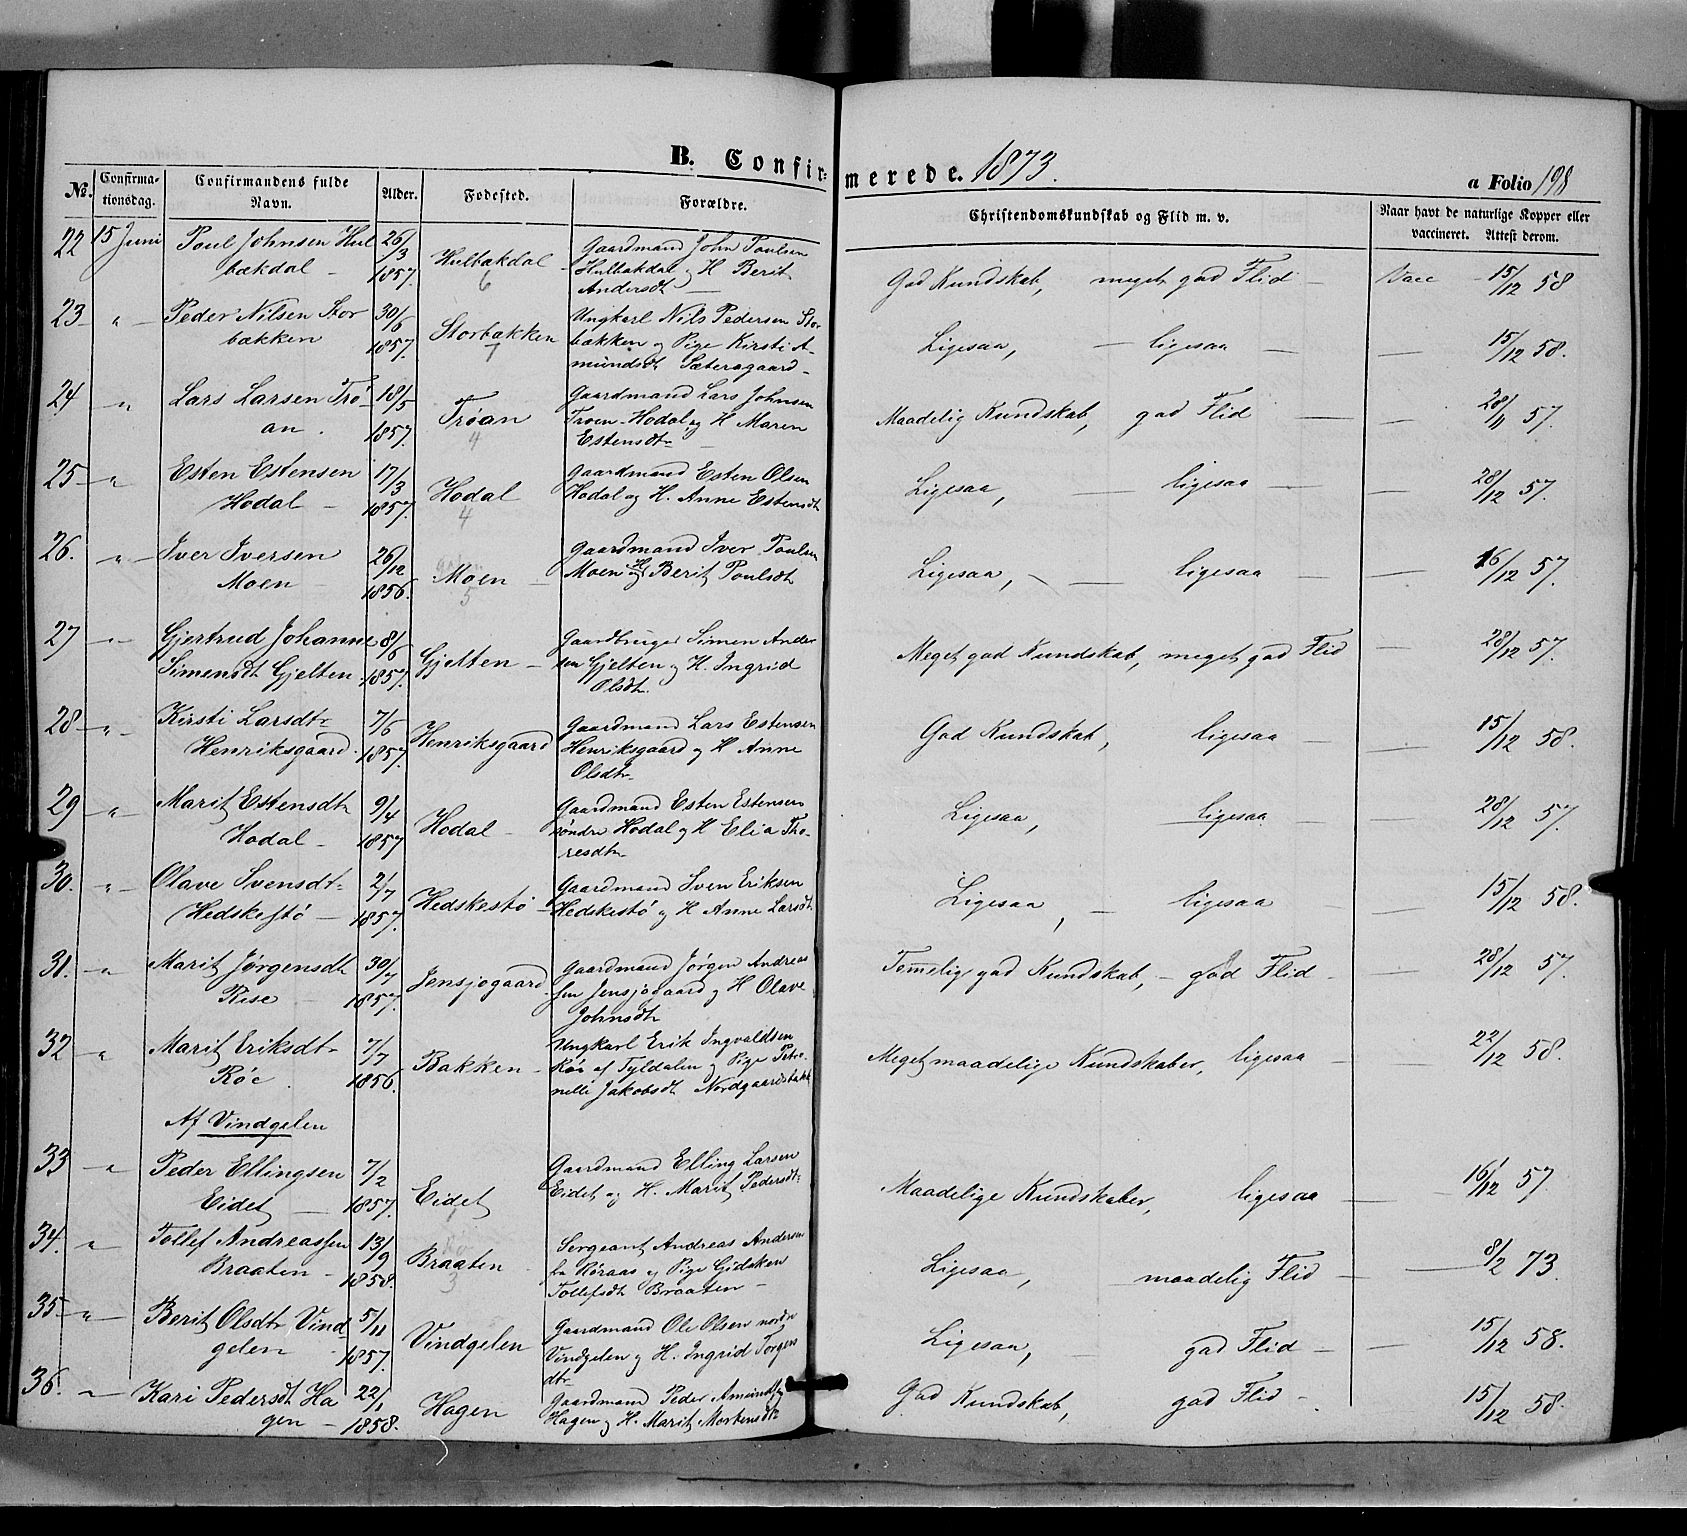 B. Confirmerede. 1873.
a Folio 198
No. Confirmationsdag. Confirmandens fulde Navn. Alder. Fodested. Forældre. Christendomskundskab og Flid m. v. Naar havt de naturlige Kopper eller vaccineret. Attest derom.
22 15 Juni Poul Johnsen Hul 26/3 Hulbakdal Gaardmand John Poulsen
bækdal - 1857. 6 Hulbakdal og H Berit
Andersdt God Kundskab, meget god Flid - Vacc - 15/12 58
23 " Peder Nilsen Stor 30/6 Storbækken Ungkarl Nils Pedersen Stor
bækken 1857. 7 bækken og Pige Kirsti A-
mundsdt Sætersgaard - Ligesaa, - ligesaa - 15/12 58.
24 " Lars Larsen Trø- 18/5 Trøan Gaardmand Lars Johnsen
an. 1857. 4 Troen-Hodal og H Maren
Estensdt Maadelig Kundskab, god Flid - 28/11 57.
25 " Esten Estensen 17/3 Hodal Gaardmand Esten Olsen
Hodal - 1857. 4 Hodal og H. Anne Estensdt Ligesaa, - ligesaa - 28/12 57.
26. " Iver Iversen 26/12 Moen Gaardmand Iver Poulsen
Moen 1856. 5 Moen og H Berit Poulsdt Ligesaa, - ligesaa - 16/12 57.
27 " Gjertrud Johanne 8/6 Gjelten - Gaardbruger Simen Ander
Simensdt Gjelten 1857. sen Gjelten og H. Ingrid
Olsdt. Meget god Kundskab, meget god Flid - 28/12 57.
28 " Kirsti Larsdt 7/6 Henriksgaard Gaardmand Lars Estensen
Henriksgaard. 1857. Henriksgaard og H Anne
Olsdt God Kundskab, ligesaa - 15/12 58.
29 " Marit Estensdt 9/4 Hodal - Gaardmand Esten Estensen
Hodal - 1857 søndre Hodal og H Elia Tho-
resdt Ligesaa, ligesaa - 28/12 57.
30. " Olave Svensdt 2/7 Hedskestø - Gaardmand Sven Eriksen
Hedskestø - 1857. Hedskestø og H Anne Larsdt Ligesaa, - ligesaa - 15/12 58.
31. " Marit Jørgensdt 30/7 Jensjogaard Gaardmand Jørgen Andreas
Rise - 1857. sen Jensjogaard og H Olave
Johnsdt Temmelig god Kundskab, - god Flid - 28/12 57.
32 " Marit Eriksdt 7/7 Bakken - Ungkarl Erik Ingvaldsen
Røe. 1856. Røe af Tyldalen og Pige Petro-
nelle Jakobsdt Nordgaardsbakk Meget maadelige Kundskaber, ligesaa - 22/12 58.
Af Vindgelen
33 " Peder Ellingsen 7/2 Eidet Gaardmand Elling Larsen
Eidet - 1857. Eidet og H. Marit Pedersdt Maadelige Kundskaber, ligesaa - 16/12 57
34. " Tollef Andreassen 13/9 Braaten - Sergeant Andreas Andersen
Braaten - 1858. 3 fra Røraas og Pige Gidsken
Tollefsdt Braaten - Ligesaa, maadelig Flid - 8/2 73.
35 " Berit Olsdt Vind 5/11 Vindgelen Gaardmand Ole Olsen nordre
gelen - 1857. Vindgelen og H. Ingrid Torgers
dt Ligesaa, - god Flid - 15/12 58.
36. " Kari Pedersdt Ha 22/1 Hagen Gaardmand Peder Amundsen
gen - 1858. Hagen og H. Marit Mortensdt God Kundskab, god Flid - 15/12 58.